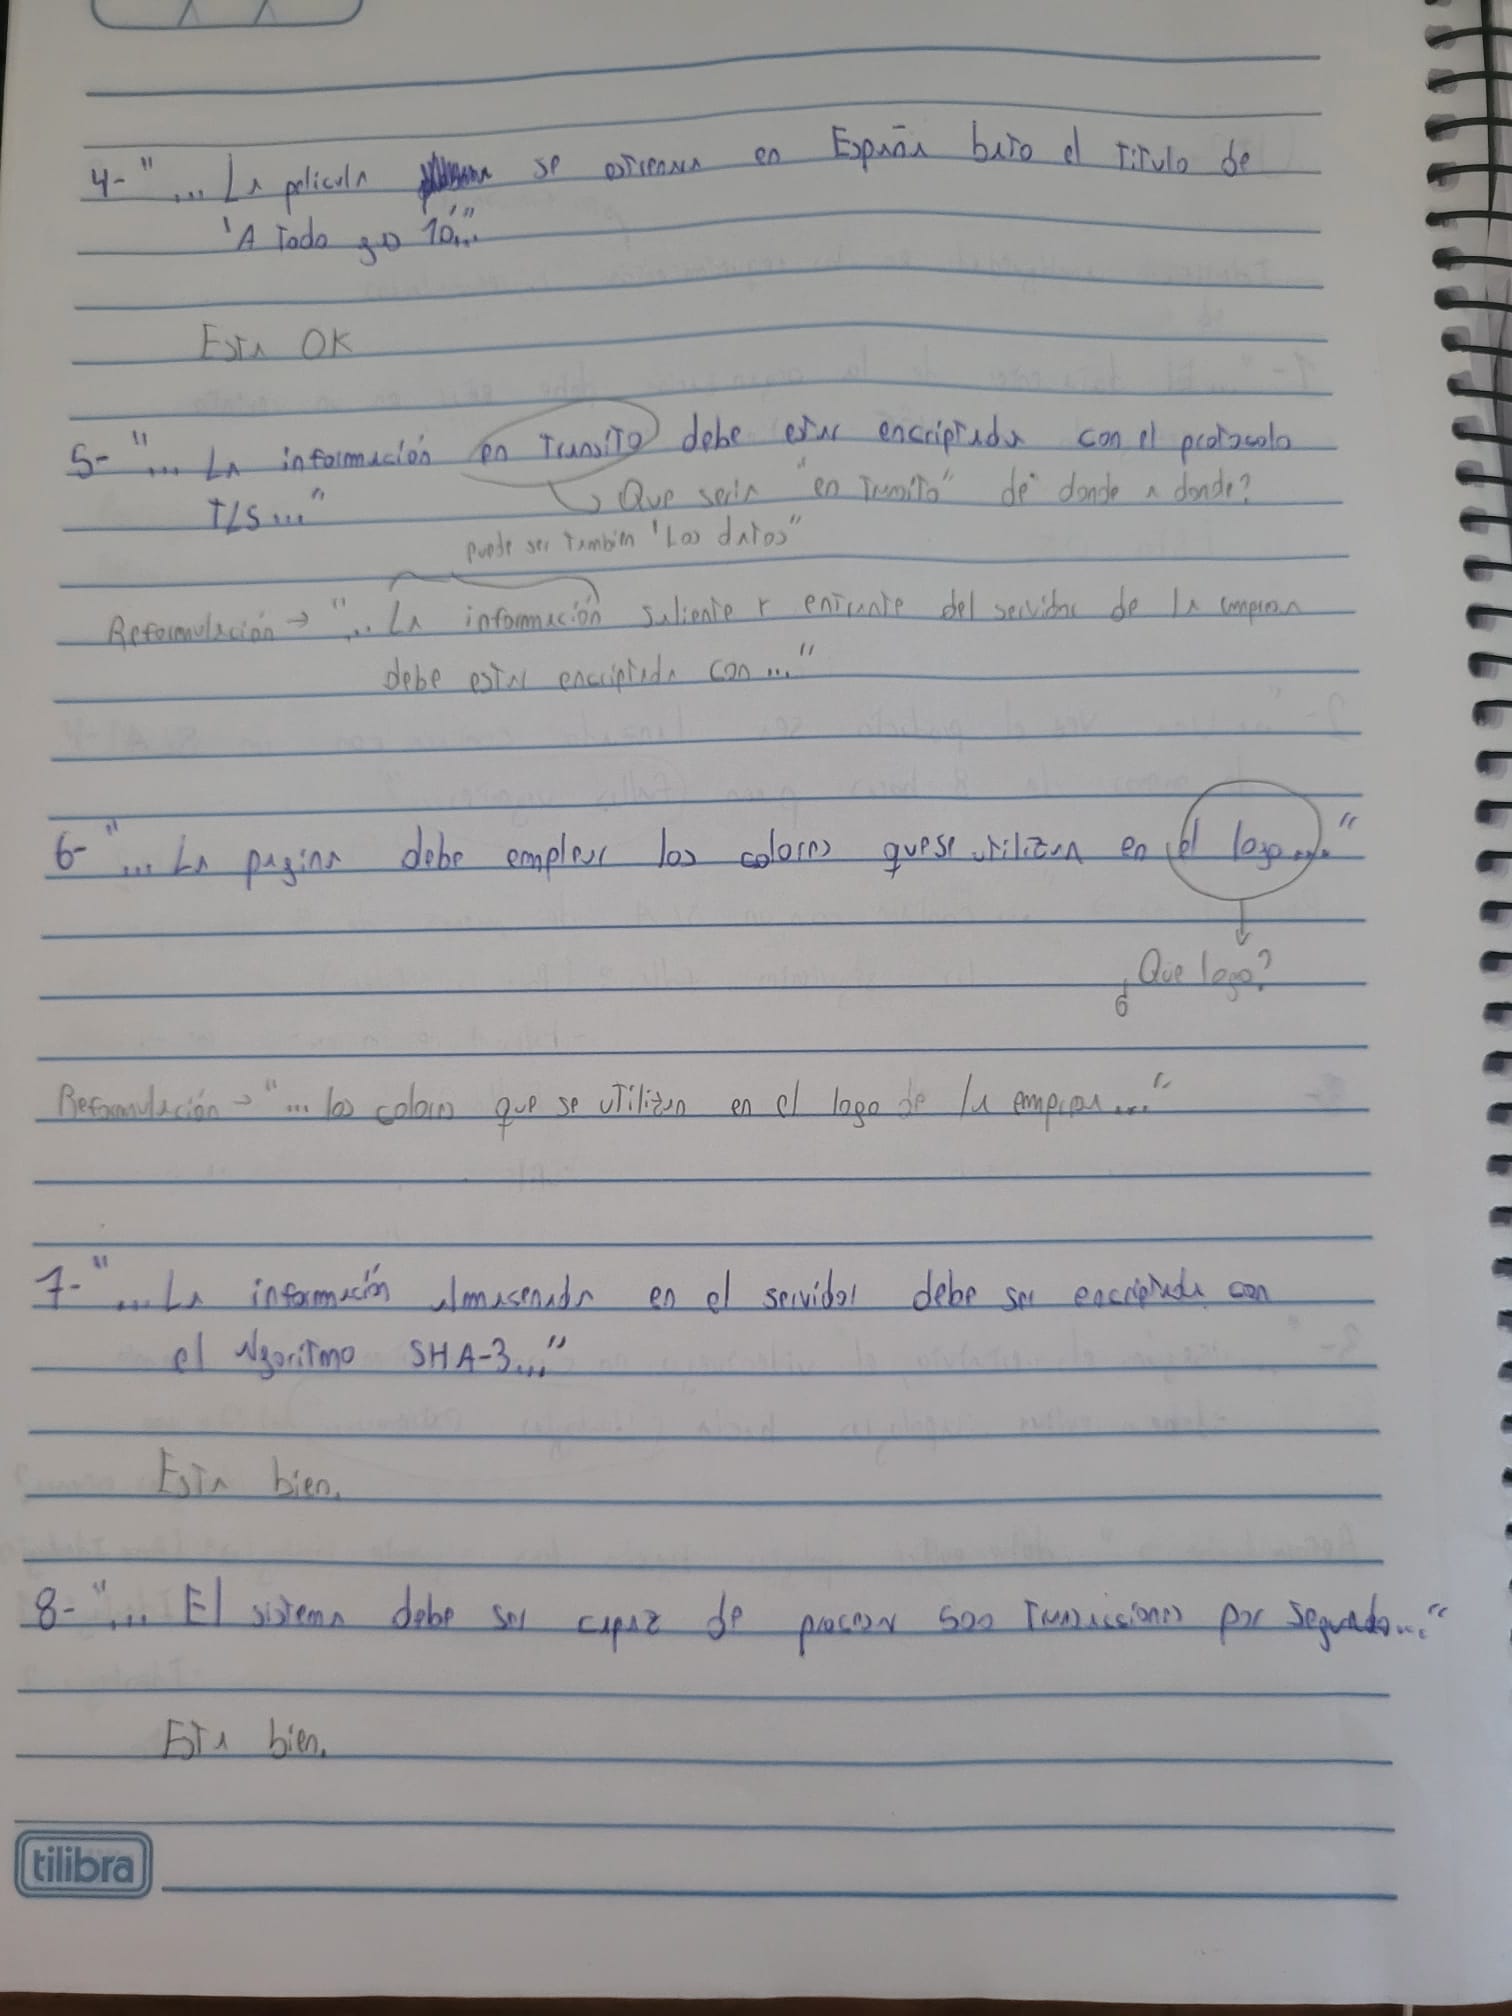 4- "... La pelicula se estrena en España bajo el titulo de
'A Todo gas 10'..."
Esta OK
5- "... La información en Transito debe estar encriptada con el protocolo
TLS..."
Que seria "en Transito" de donde a donde?
puede ser también 'Los datos"
Reformulación → "... La información saliente y entrante del servidor de la empresa
debe estar encriptada con..."
6- "... La pagina debe emplear los colores que se utilizan en el logo..."
¿Que logo?
Reformulación → "... los colores que se utilizan en el logo de la empresa..."
7- "... La información almasenada en el servidor debe ser encriptada con
el algoritmo SHA-3..."
Esta bien.
8- "... El sistema debe ser capaz de procesar 500 Transacciones por segundo..."
Esta bien.
tilibra